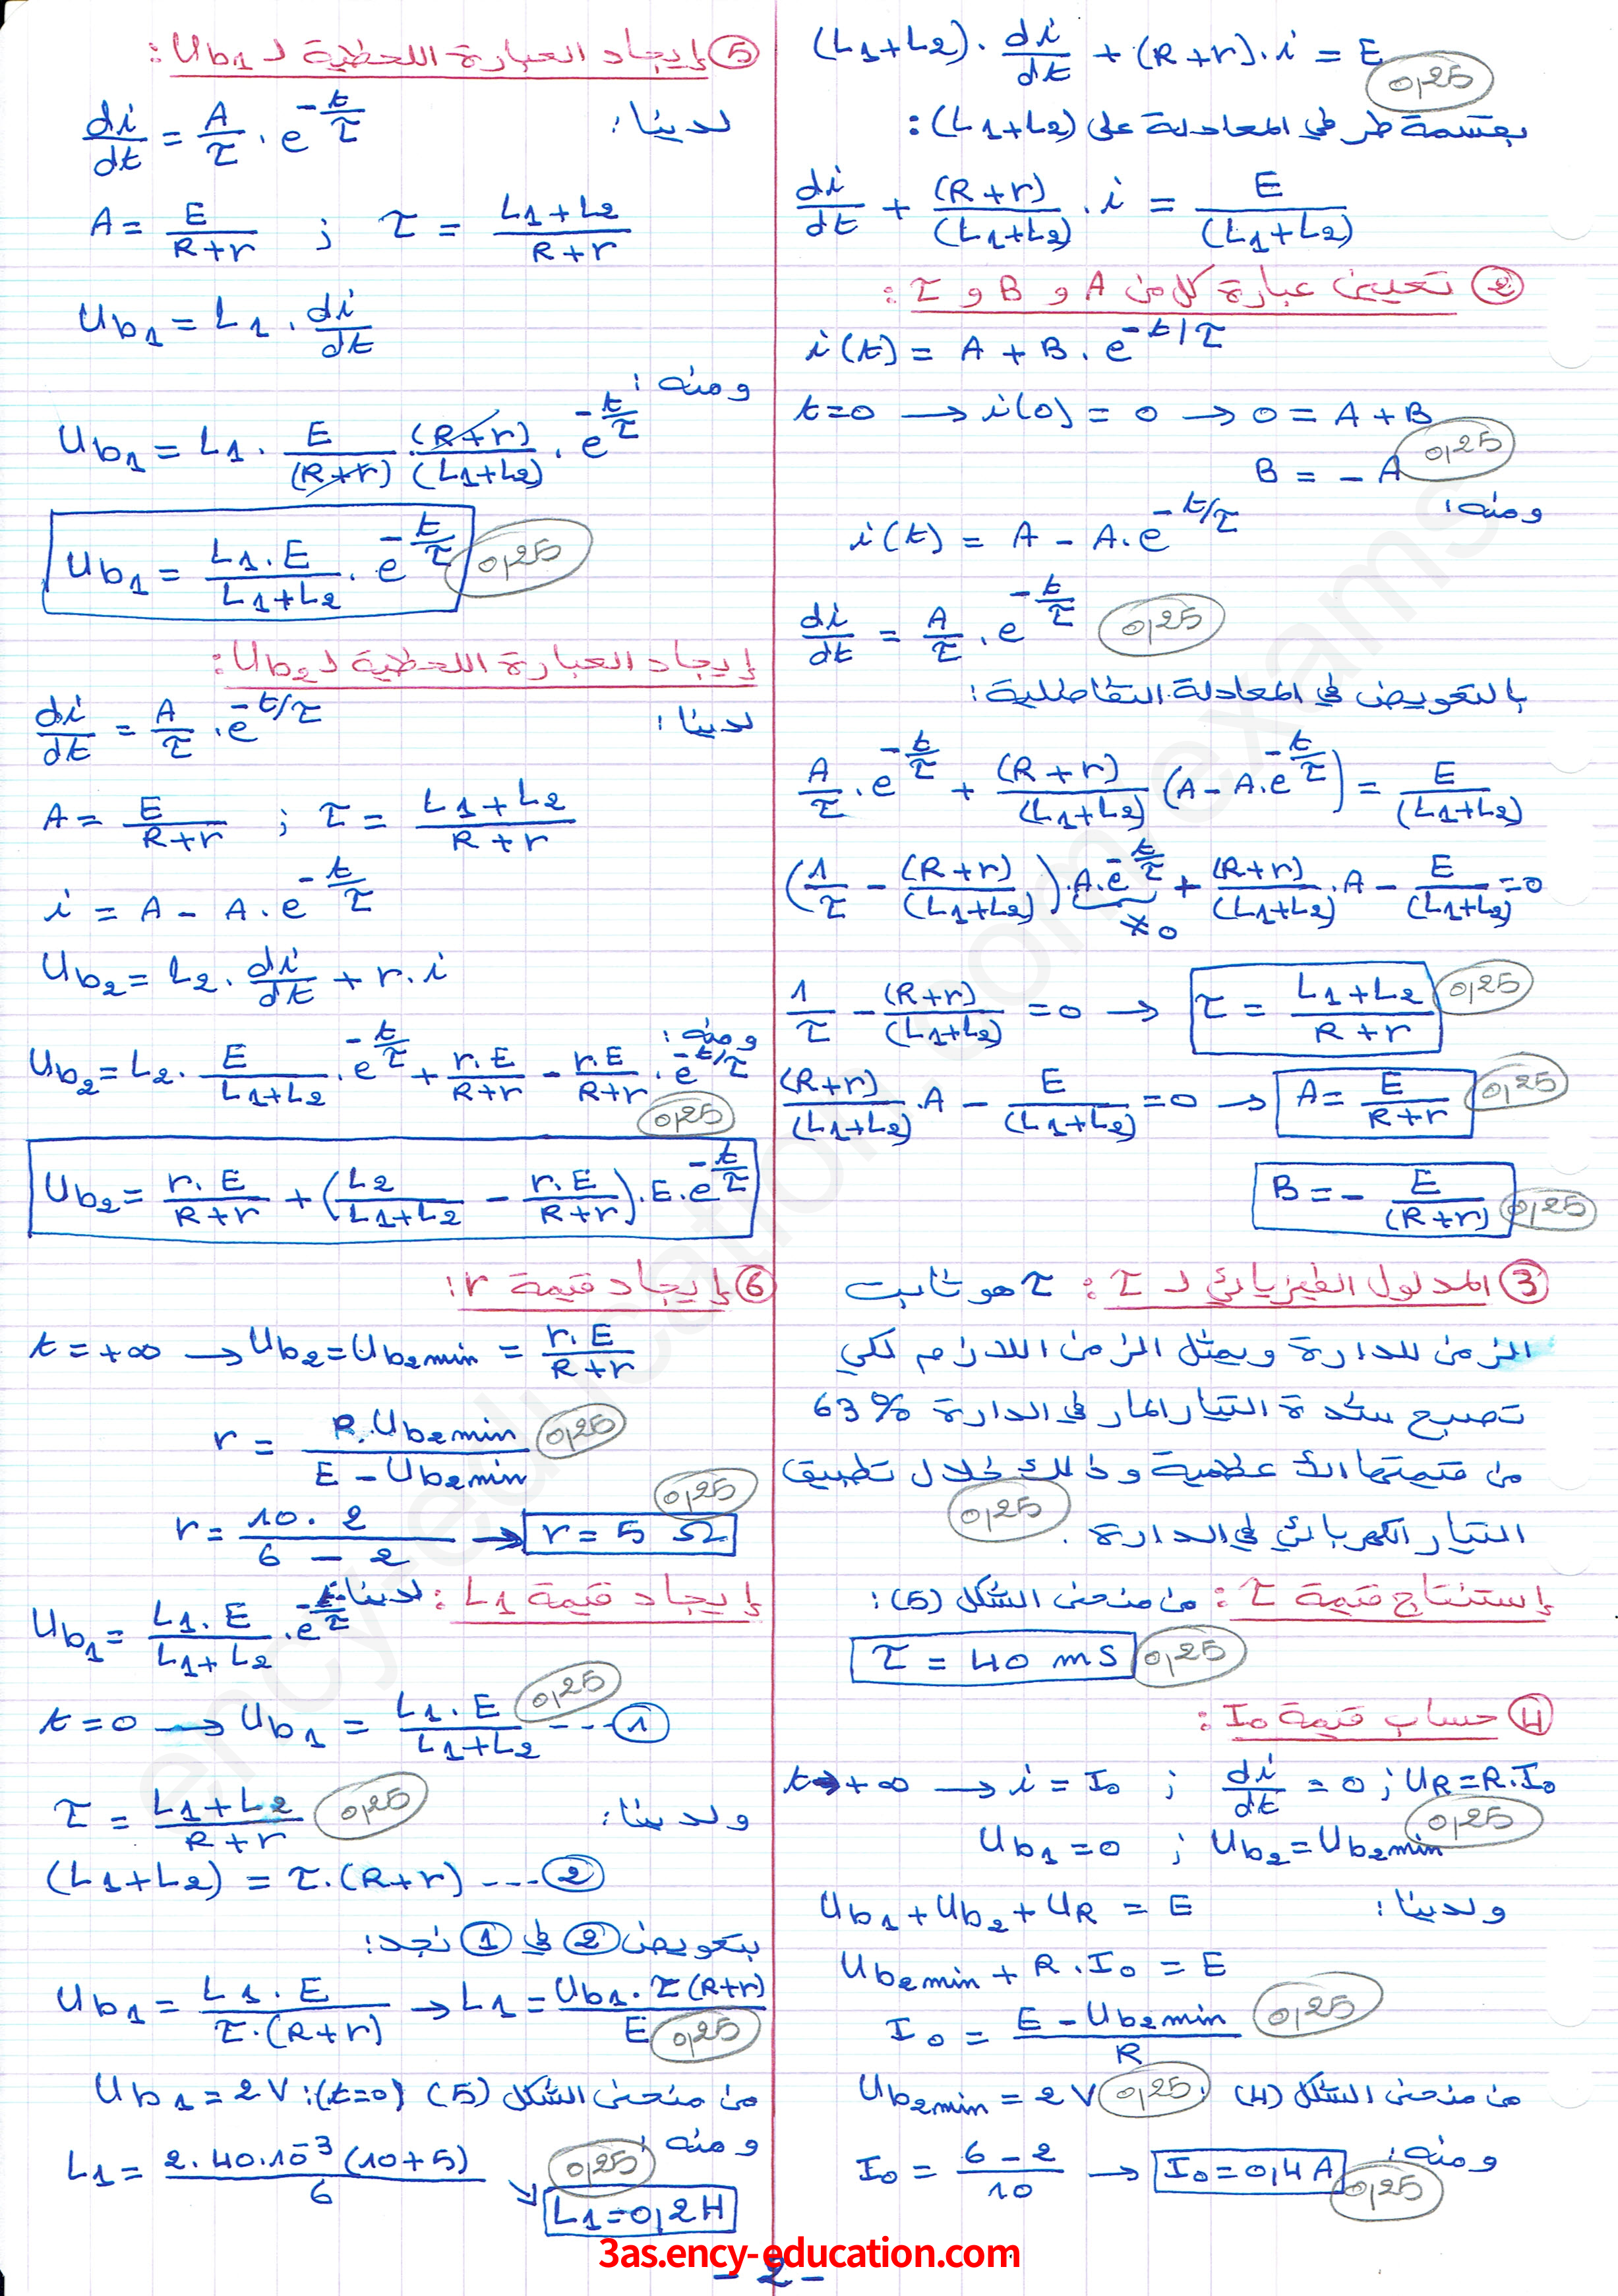 (L1+L2). di/dt + (R+r).i = E
0,25
بقسمة طرفي المعادلة على (L1+L2) :
di/dt + (R+r)/(L1+L2) . i = E/(L1+L2)
② تعيين عبارة كل من A و B و τ :
i(t) = A + B . e^-t/τ
t=0 → i(0) = 0 → 0 = A + B
0,25
B = - A
ومنه :
i(t) = A - A.e^-t/τ
di/dt = A/τ . e^-t/τ 0,25
بالتعويض في المعادلة التفاضلية :
A/τ . e^-t/τ + (R+r)/(L1+L2) (A - A.e^-t/τ) = E/(L1+L2)
(1/τ - (R+r)/(L1+L2)) . A.e^-t/τ + (R+r)/(L1+L2) . A - E/(L1+L2) = 0
≠ 0
1/τ - (R+r)/(L1+L2) = 0 → τ = L1+L2/R+r 0,25
(R+r)/(L1+L2) . A - E/(L1+L2) = 0 → A = E/R+r 0,25
B = - E/(R+r) 0,25
③ المدلول الفيزيائي لـ τ : τ هو ثابت
الزمن للدارة ويمثل الزمن اللازم لكي
تصبح شدة التيار المار في الدارة 63%
من قيمتها الأعظمية وذلك خلال تطبيق
التيار الكهربائي في الدارة . 0,25
إستنتاج قيمة τ : من منحنى الشكل (5) :
τ = 40 ms 0,25
④ حساب قيمة I0 :
t→+∞ → i = I0 ; di/dt = 0 ; UR=R.I0
0,25
Ub1 = 0 ; Ub2 = Ub2min
ولدينا : Ub1 + Ub2 + UR = E
Ub2min + R . I0 = E
I0 = E - Ub2min/R 0,25
من منحنى الشكل (4) : Ub2min = 2 V 0,25
ومنه : I0 = 6 - 2/10 → I0 = 0,4 A 0,25
⑤ إيجاد العبارة اللحظية لـ Ub1 :
لدينا : di/dt = A/τ . e^-t/τ
A = E/R+r ; τ = L1+L2/R+r
Ub1 = L1 . di/dt
ومنه :
Ub1 = L1 . E/(R+r) . (R+r)/(L1+L2) . e^-t/τ
Ub1 = L1.E/L1+L2 . e^-t/τ 0,25
إيجاد العبارة اللحظية لـ Ub2 :
لدينا : di/dt = A/τ . e^-t/τ
A = E/R+r ; τ = L1+L2/R+r
i = A - A . e^-t/τ
Ub2 = L2 . di/dt + r . i
ومنه :
Ub2 = L2 . E/L1+L2 . e^-t/τ + r.E/R+r - r.E/R+r . e^-t/τ
0,25
Ub2 = r.E/R+r + (L2/L1+L2 - r.E/R+r) . E . e^-t/τ
⑥ إيجاد قيمة r :
t = +∞ → Ub2 = Ub2min = r.E/R+r
r = R.Ub2min/E - Ub2min 0,25
0,25
r = 10 . 2/6 - 2 → r = 5 Ω
إيجاد قيمة L1 : لدينا :
Ub1 = L1.E/L1+L2 . e^-t/τ
t = 0 → Ub1 = L1.E/L1+L2 ---- ① 0,25
ولدينا : τ = L1+L2/R+r 0,25
(L1+L2) = τ.(R+r) --- ②
بتعويض ② في ① نجد :
Ub1 = L1.E/τ.(R+r) → L1 = Ub1.τ(R+r)/E 0,25
من منحنى الشكل (5) (t=0) : Ub1 = 2 V
ومنه :
L1 = 2.40.10^-3 (10+5)/6
0,25
L1 = 0,2 H
3as.ency-education.com
- 2 -
ency-education.com/exams